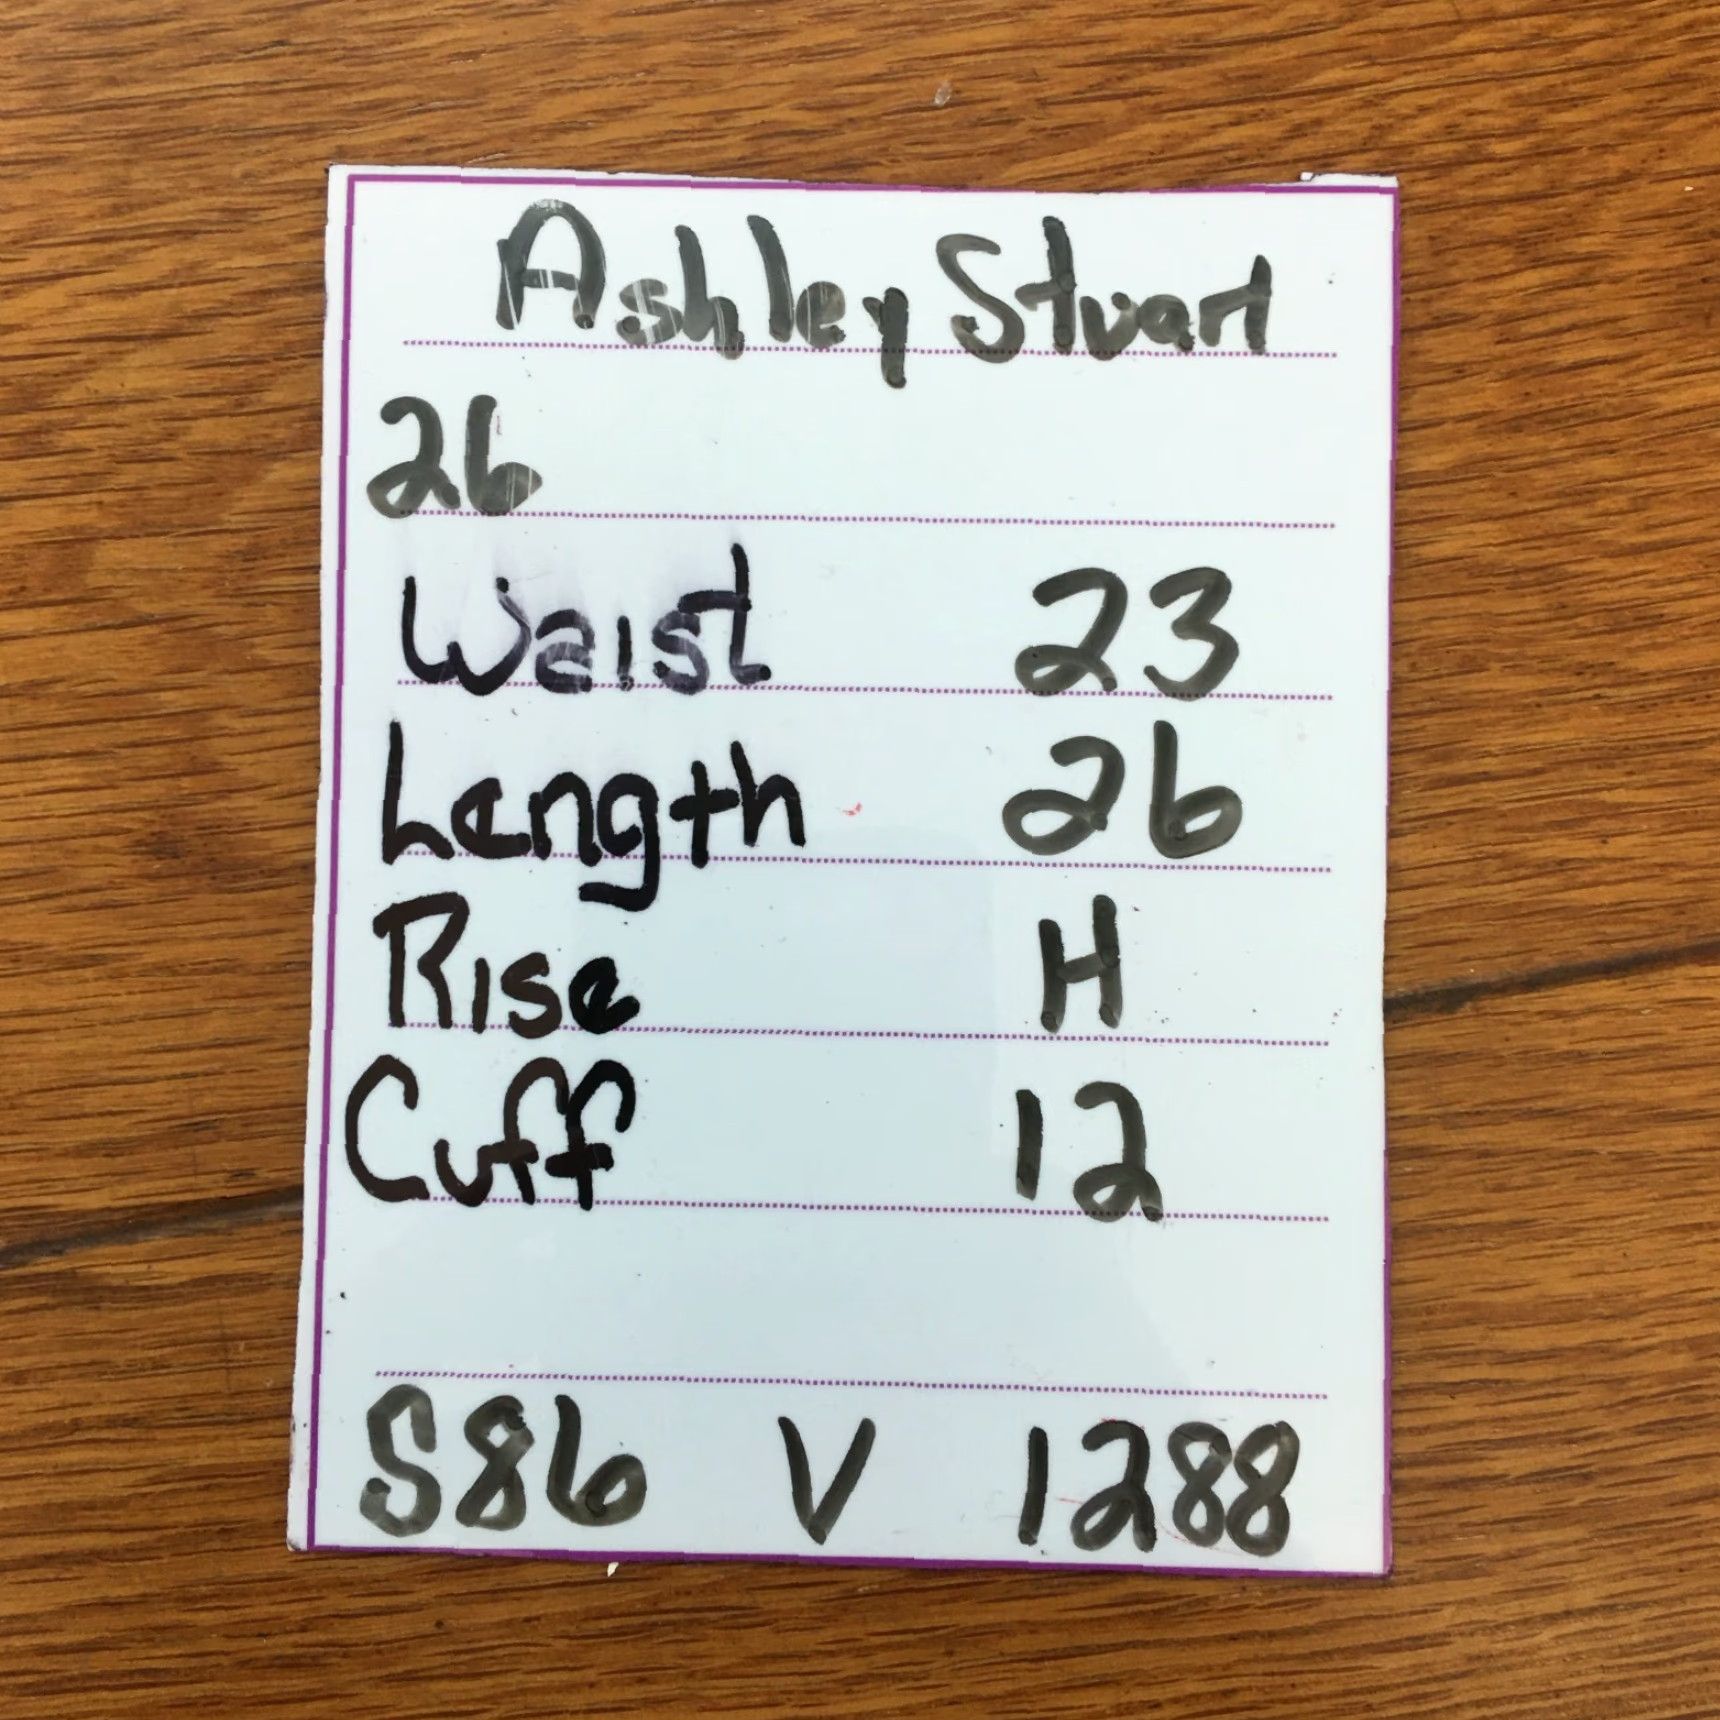 Ashley Stuart
26
Waist 23
Length 26
Rise H
Cuff 12
S86 V 1288